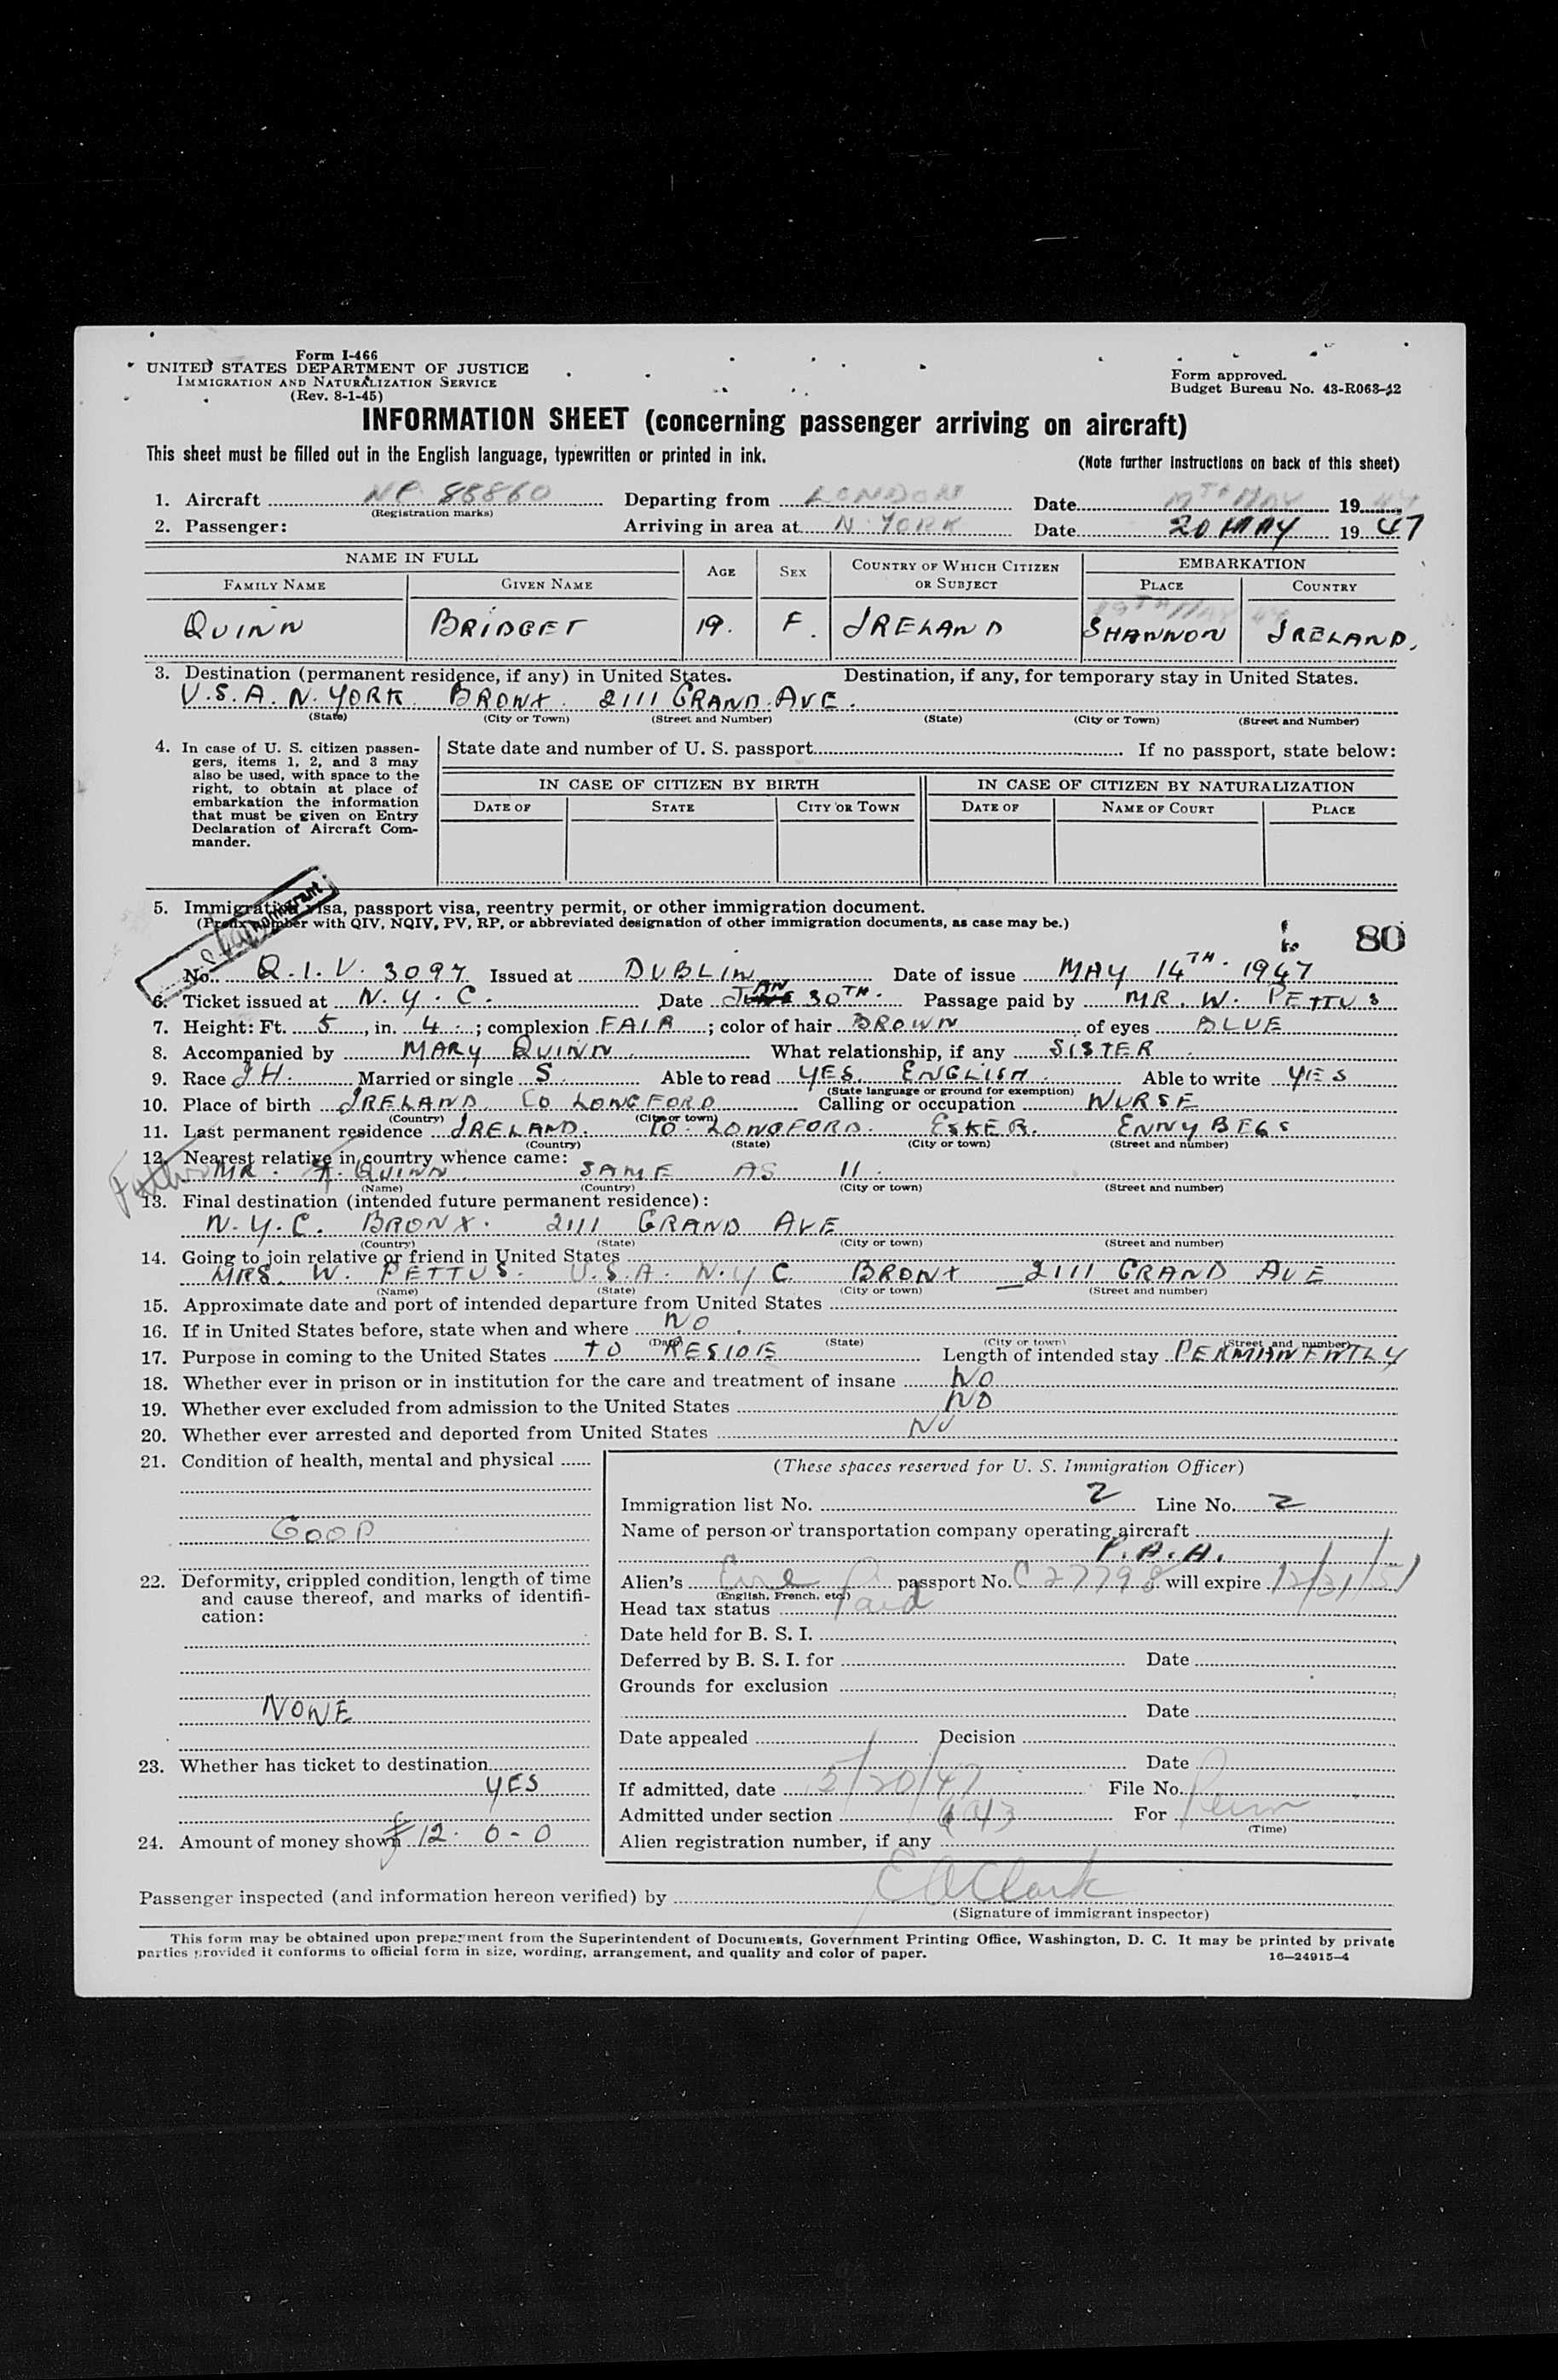 Form I-466
UNITED STATES DEPARTMENT OF JUSTICE
IMMIGRATION AND NATURALIZATION SERVICE
(Rev. 8-1-45)
Form approved.
Budget Bureau No. 43-R063-42
INFORMATION SHEET (concerning passenger arriving on aircraft)
This sheet must be filled out in the English language, typewritten or printed in ink.
(Note further instructions on back of this sheet)
1. Aircraft 88860 Departing from LONDON Date MAY 19
(Registration marks)
2. Passenger: Arriving in area at N. YORK Date 20 MAY 1947
NAME IN FULL AGE SEX COUNTRY OF WHICH CITIZEN OR SUBJECT EMBARKATION
FAMILY NAME GIVEN NAME PLACE COUNTRY
19TH MAY 47
QUINN BRIDGET 19. F. IRELAND SHANNON IRELAND.
3. Destination (permanent residence, if any) in United States. Destination, if any, for temporary stay in United States.
U.S.A. N. YORK BRONX. 2111 GRAND. AVE.
(State) (City or Town) (Street and Number) (State) (City or Town) (Street and Number)
4. In case of U. S. citizen passengers, items 1, 2, and 3 may also be used, with space to the right, to obtain at place of embarkation the information that must be given on Entry Declaration of Aircraft Commander.
State date and number of U. S. passport If no passport, state below:
IN CASE OF CITIZEN BY BIRTH IN CASE OF CITIZEN BY NATURALIZATION
DATE OF STATE CITY OR TOWN DATE OF NAME OF COURT PLACE
5. Immigration visa, passport visa, reentry permit, or other immigration document.
(Prefix number with QIV, NQIV, PV, RP, or abbreviated designation of other immigration documents, as case may be.)
80
No. Q.I.V. 3097 Issued at DUBLIN Date of issue MAY 14TH. 1947
6. Ticket issued at N.Y.C. Date JAN 30TH. Passage paid by MR. W. PETTUS
7. Height: Ft. 5, in. 4.; complexion FAIR; color of hair BROWN of eyes BLUE
8. Accompanied by MARY QUINN. What relationship, if any SISTER.
9. Race IH. Married or single S. Able to read YES. ENGLISH. Able to write YES
(State language or ground for exemption)
10. Place of birth IRELAND. CO LONGFORD Calling or occupation NURSE
(Country) (City or town)
11. Last permanent residence IRELAND. CO. LONGFORD. ESKER. ENNYBEGS
(Country) (State) (City or town) (Street and number)
12. Nearest relative in country whence came:
Father MR. QUINN. SAME AS 11.
(Name) (Country) (City or town) (Street and number)
13. Final destination (intended future permanent residence):
N.Y.C. BRONX. 2111 GRAND AVE
(Country) (State) (City or town) (Street and number)
14. Going to join relative or friend in United States
MRS. W. PETTUS. U.S.A. N.Y C. BRONX 2111 GRAND AVE
(Name) (State) (City or town) (Street and number)
15. Approximate date and port of intended departure from United States
16. If in United States before, state when and where NO.
(Date) (State) (City or town) (Street and number)
17. Purpose in coming to the United States TO RESIDE Length of intended stay PERMANENTLY
18. Whether ever in prison or in institution for the care and treatment of insane NO
19. Whether ever excluded from admission to the United States NO
20. Whether ever arrested and deported from United States NO
21. Condition of health, mental and physical
GOOD
22. Deformity, crippled condition, length of time and cause thereof, and marks of identification:
NONE
23. Whether has ticket to destination
YES
24. Amount of money shown £ 12. 0 - 0
(These spaces reserved for U. S. Immigration Officer)
Immigration list No. 2 Line No. 2
Name of person or transportation company operating aircraft
P.A.A.
Alien's Eire passport No. C 27798 will expire 12/31/51
(English, French, etc.)
Head tax status Paid
Date held for B. S. I.
Deferred by B. S. I. for Date
Grounds for exclusion
Date
Date appealed Decision
Date
If admitted, date 5/20/47 File No.
Admitted under section For Perm
(Time)
Alien registration number, if any
Passenger inspected (and information hereon verified) by E A Clark
(Signature of immigrant inspector)
This form may be obtained upon prepayment from the Superintendent of Documents, Government Printing Office, Washington, D. C. It may be printed by private
parties provided it conforms to official form in size, wording, arrangement, and quality and color of paper.
16—24915-4